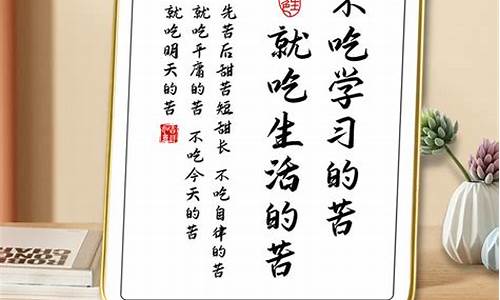 不吃学习的苦
就吃生活的苦
先苦后甜苦短甜长 不吃自律的苦
就吃平庸的苦 不吃今天的苦
就吃明天的苦